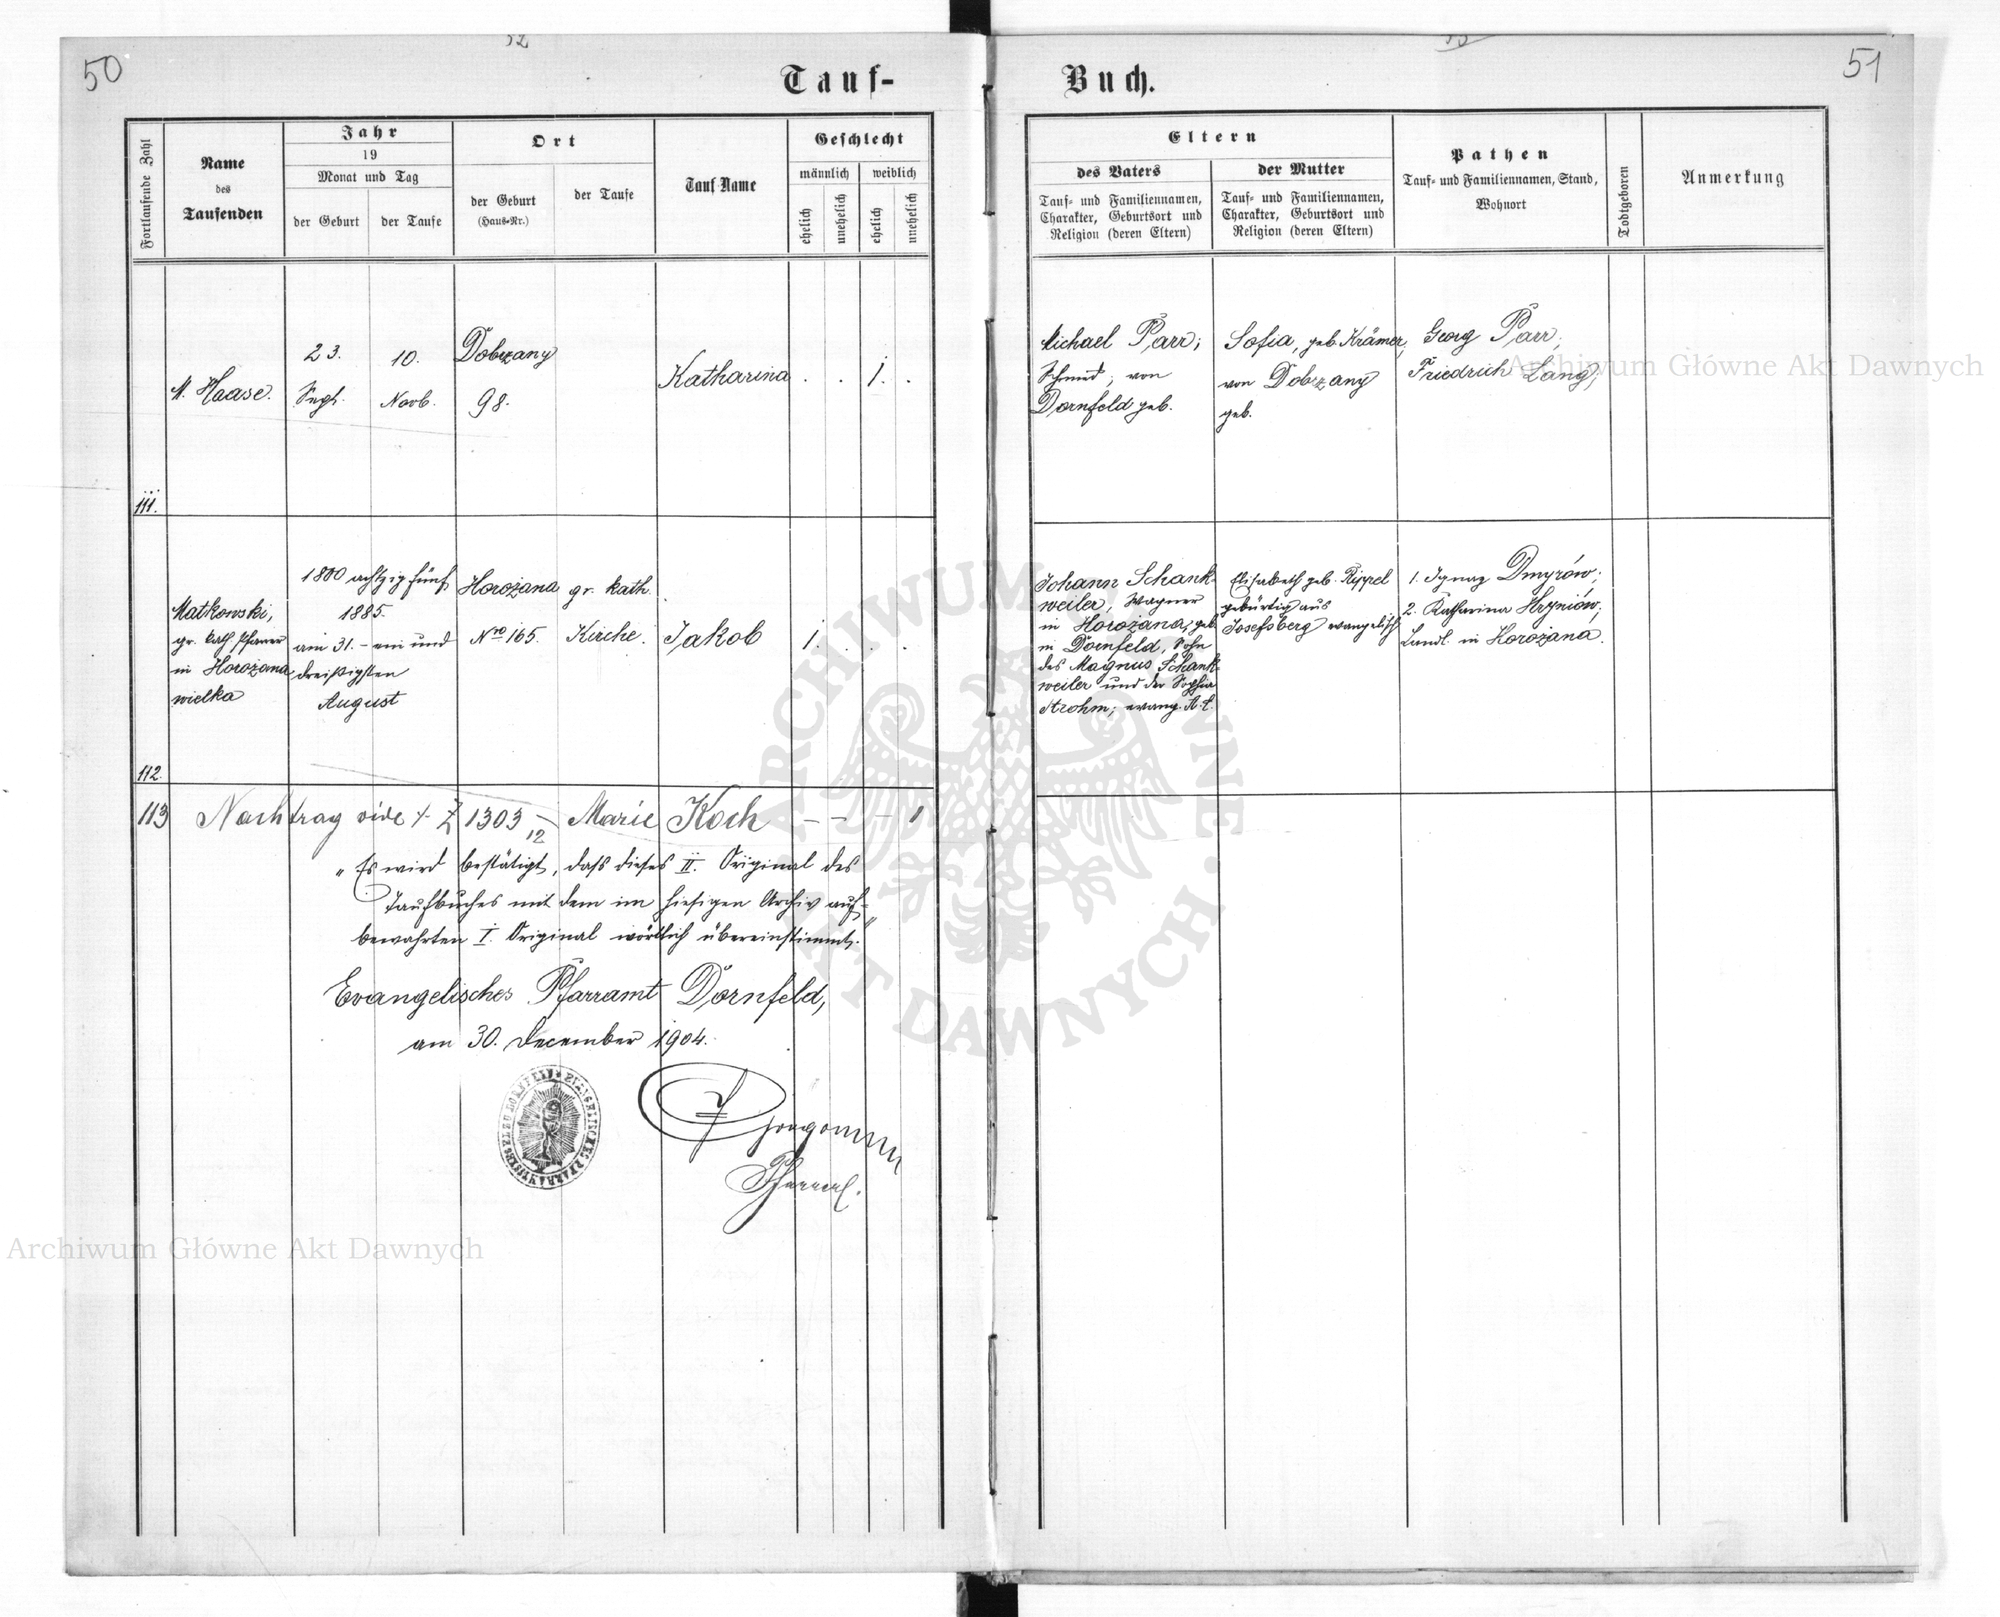 50
Tauf-
Fortlaufende Zahl
Name
des
Taufenden
Jahr
19
Monat und Tag
der Geburt
der Taufe
Ort
der Geburt
(Haus-Nr.)
der Taufe
Tauf-Name
Geschlecht
männlich
weiblich
ehelich
unehelich
ehelich
unehelich
M. Haase.
23.
Sept.
10.
Novb.
Dobrzany
98.
Katharina
. . 1. .
111.
Matkowski,
gr. kath. Pfarrer
in Horożana
wielka
1800 achtzig fünf
1885.
am 31. – ein und
dreißigsten
August
Horożana
Nro 165.
gr. kath.
Kirche.
Jakob
1. . . .
112.
113 Nachtrag vide Z 1303/12 Marie Koch – – – 1
"Es wird bestätigt, dass dieses II. Original des
Taufbuches mit dem im hiesigen Archiv auf-
bewahrten I. Original wörtlich übereinstimmt."
Evangelisches Pfarramt Dornfeld,
am 30. December 1904.
Pfarrer.
Buch.
51
Eltern
des Vaters
Tauf- und Familiennamen,
Charakter, Geburtsort und
Religion (deren Eltern)
der Mutter
Tauf- und Familiennamen,
Charakter, Geburtsort und
Religion (deren Eltern)
Pathen
Tauf- und Familiennamen, Stand,
Wohnort
Todtgeboren
Anmerkung
Michael Parr;
Schmied; von
Dornfeld geb.
Sofia, geb. Krämer,
von Dobrzany
geb.
Georg Parr;
Friedrich Lang;
Johann Schank-
weiler, Wagner
in Horożana, geb.
in Dornfeld, Sohn
des Magnus Schank-
weiler und der Sophia
Strohm; evang. A. C.
Elisabeth geb. Rippel
gebürtig aus
Josefsberg evangelisch
1. Ignaz Dmyrów;
2. Katharina Hryniów;
Landl. in Horożana.
Archiwum Główne Akt Dawnych
Archiwum Główne Akt Dawnych
ARCHIWUM GŁÓWNE AKT DAWNYCH